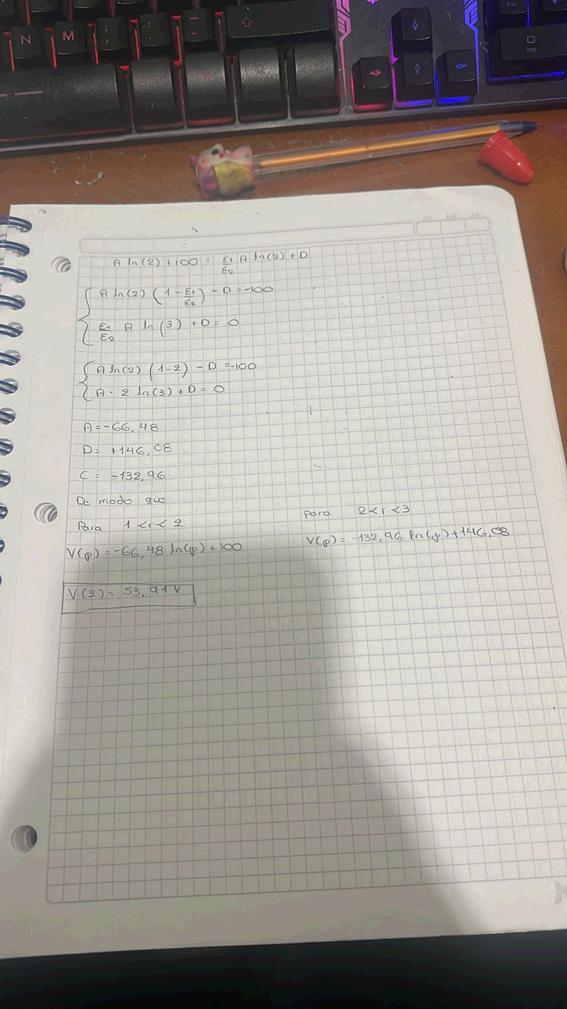 A ln(2) + 100 = E1/E2 A ln(2) + D
A ln(2) (1 - E1/E2) - D = -100
E1/E2 A ln(3) + D = 0
A ln(2) (1-2) - D = -100
A · 2 ln(3) + D = 0
A = -66,48
D = +146,08
C = -132,96
De modo que
Para 1 < r < 2
V(ρ) = -66,48 ln(ρ) + 100
V(2) = 53,91 V
Para 2 < r < 3
V(ρ) = -132,96 ln(ρ) + 146,08
N
M
Fin
0
Ins